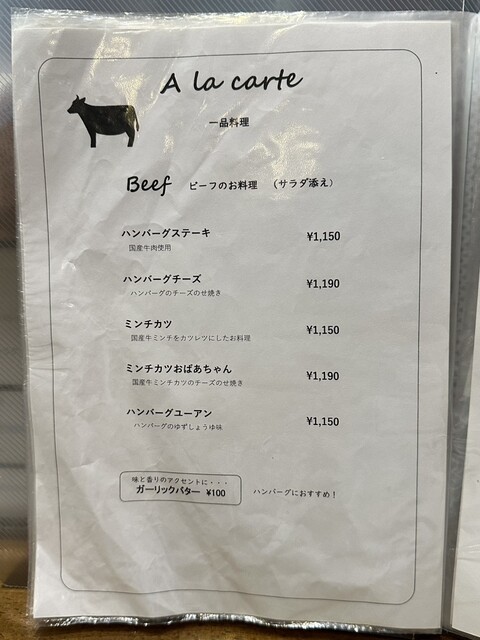 A la carte
一品料理
Beef ビーフのお料理 （サラダ添え）
ハンバーグステーキ ¥1,150
国産牛肉使用
ハンバーグチーズ ¥1,190
ハンバーグのチーズのせ焼き
ミンチカツ ¥1,150
国産牛ミンチをカツレツにしたお料理
ミンチカツおばあちゃん ¥1,190
国産牛ミンチカツのチーズのせ焼き
ハンバーグユーアン ¥1,150
ハンバーグのゆずしょうゆ味
味と香りのアクセントに・・・
ガーリックバター ¥100 ハンバーグにおすすめ！